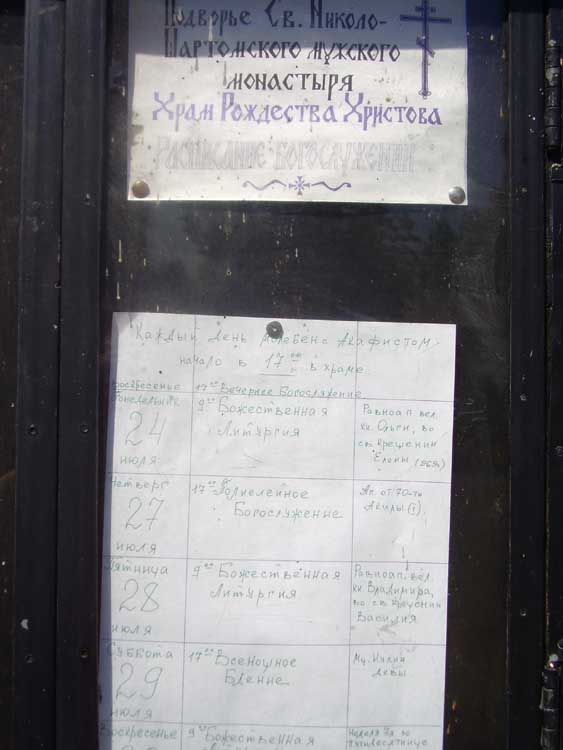 Подворье Св. Николо-
Шартомского мужского
монастыря
Храм Рождества Христова
Расписание богослужений
Каждый день молебен с Акафистом
начало в 17 00 в храме
Воскресенье 17 00 Вечернее Богослужение
Понедельник
24
июля
9 00 Божественная
Литургия
Равноап. вел.
кн. Ольги, во
св. крещении
Елены (969г)
Четверг
27
июля
17 00 Полиелейное
Богослужение
Ап. от 70-ти
Акилы (I).
Пятница
28
июля
9 00 Божественная
Литургия
Равноап. вел.
кн. Владимира,
во св. крещении
Василия
Суббота
29
июля
17 00 Всенощное
Бдение
Мц. Иулии
девы
Воскресенье
9 00 Божественная
Неделя 7я по